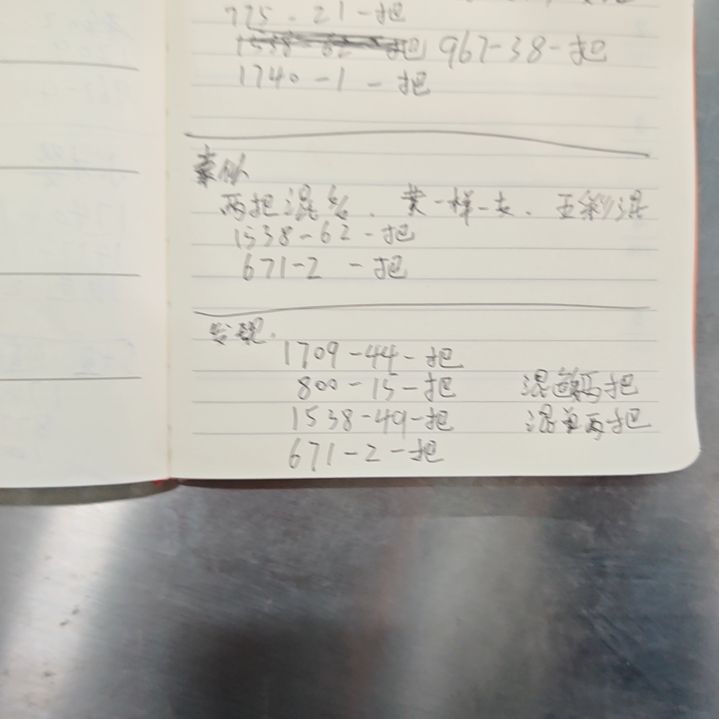 775-21-一把
967-38-一把
1740-1-一把
两把混色、黄一样一支、五彩混
1538-62-一把
671-2-一把
发现
1709-44-一把
800-15-一把 混色两把
1538-49-一把 混色两把
671-2-一把